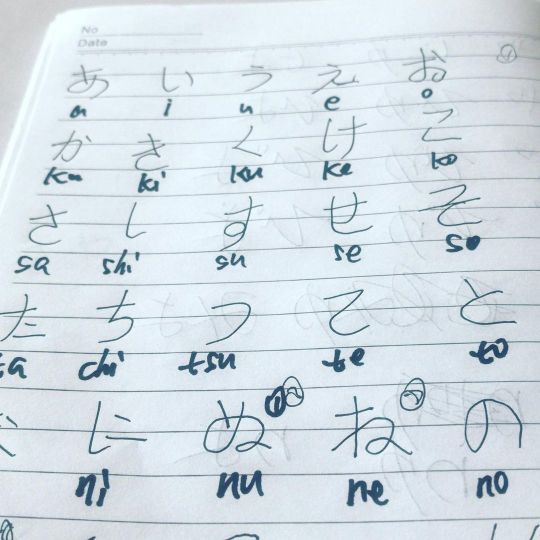 No
Date
あ い う え お ①
a i u e o
か き く け こ
ka ki ku ke ko
さ し す せ そ
sa shi su se so
た ち つ て と
ta chi tsu te to
に ぬ ね の
ni nu ne no